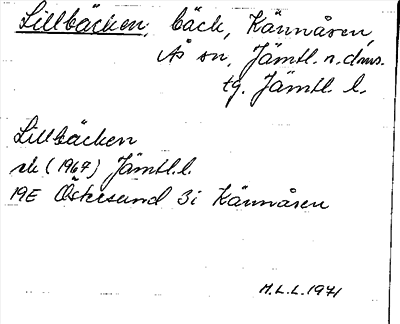 Lillbäcken, bäck, Kännåsen,
Ås sn, Jämtl. n. doms.
tg. Jämtl. l.
Lillbäcken
ek (1967) Jämtl.l.
19E Östersund 3i Kännåsen
M.L.L. 1971